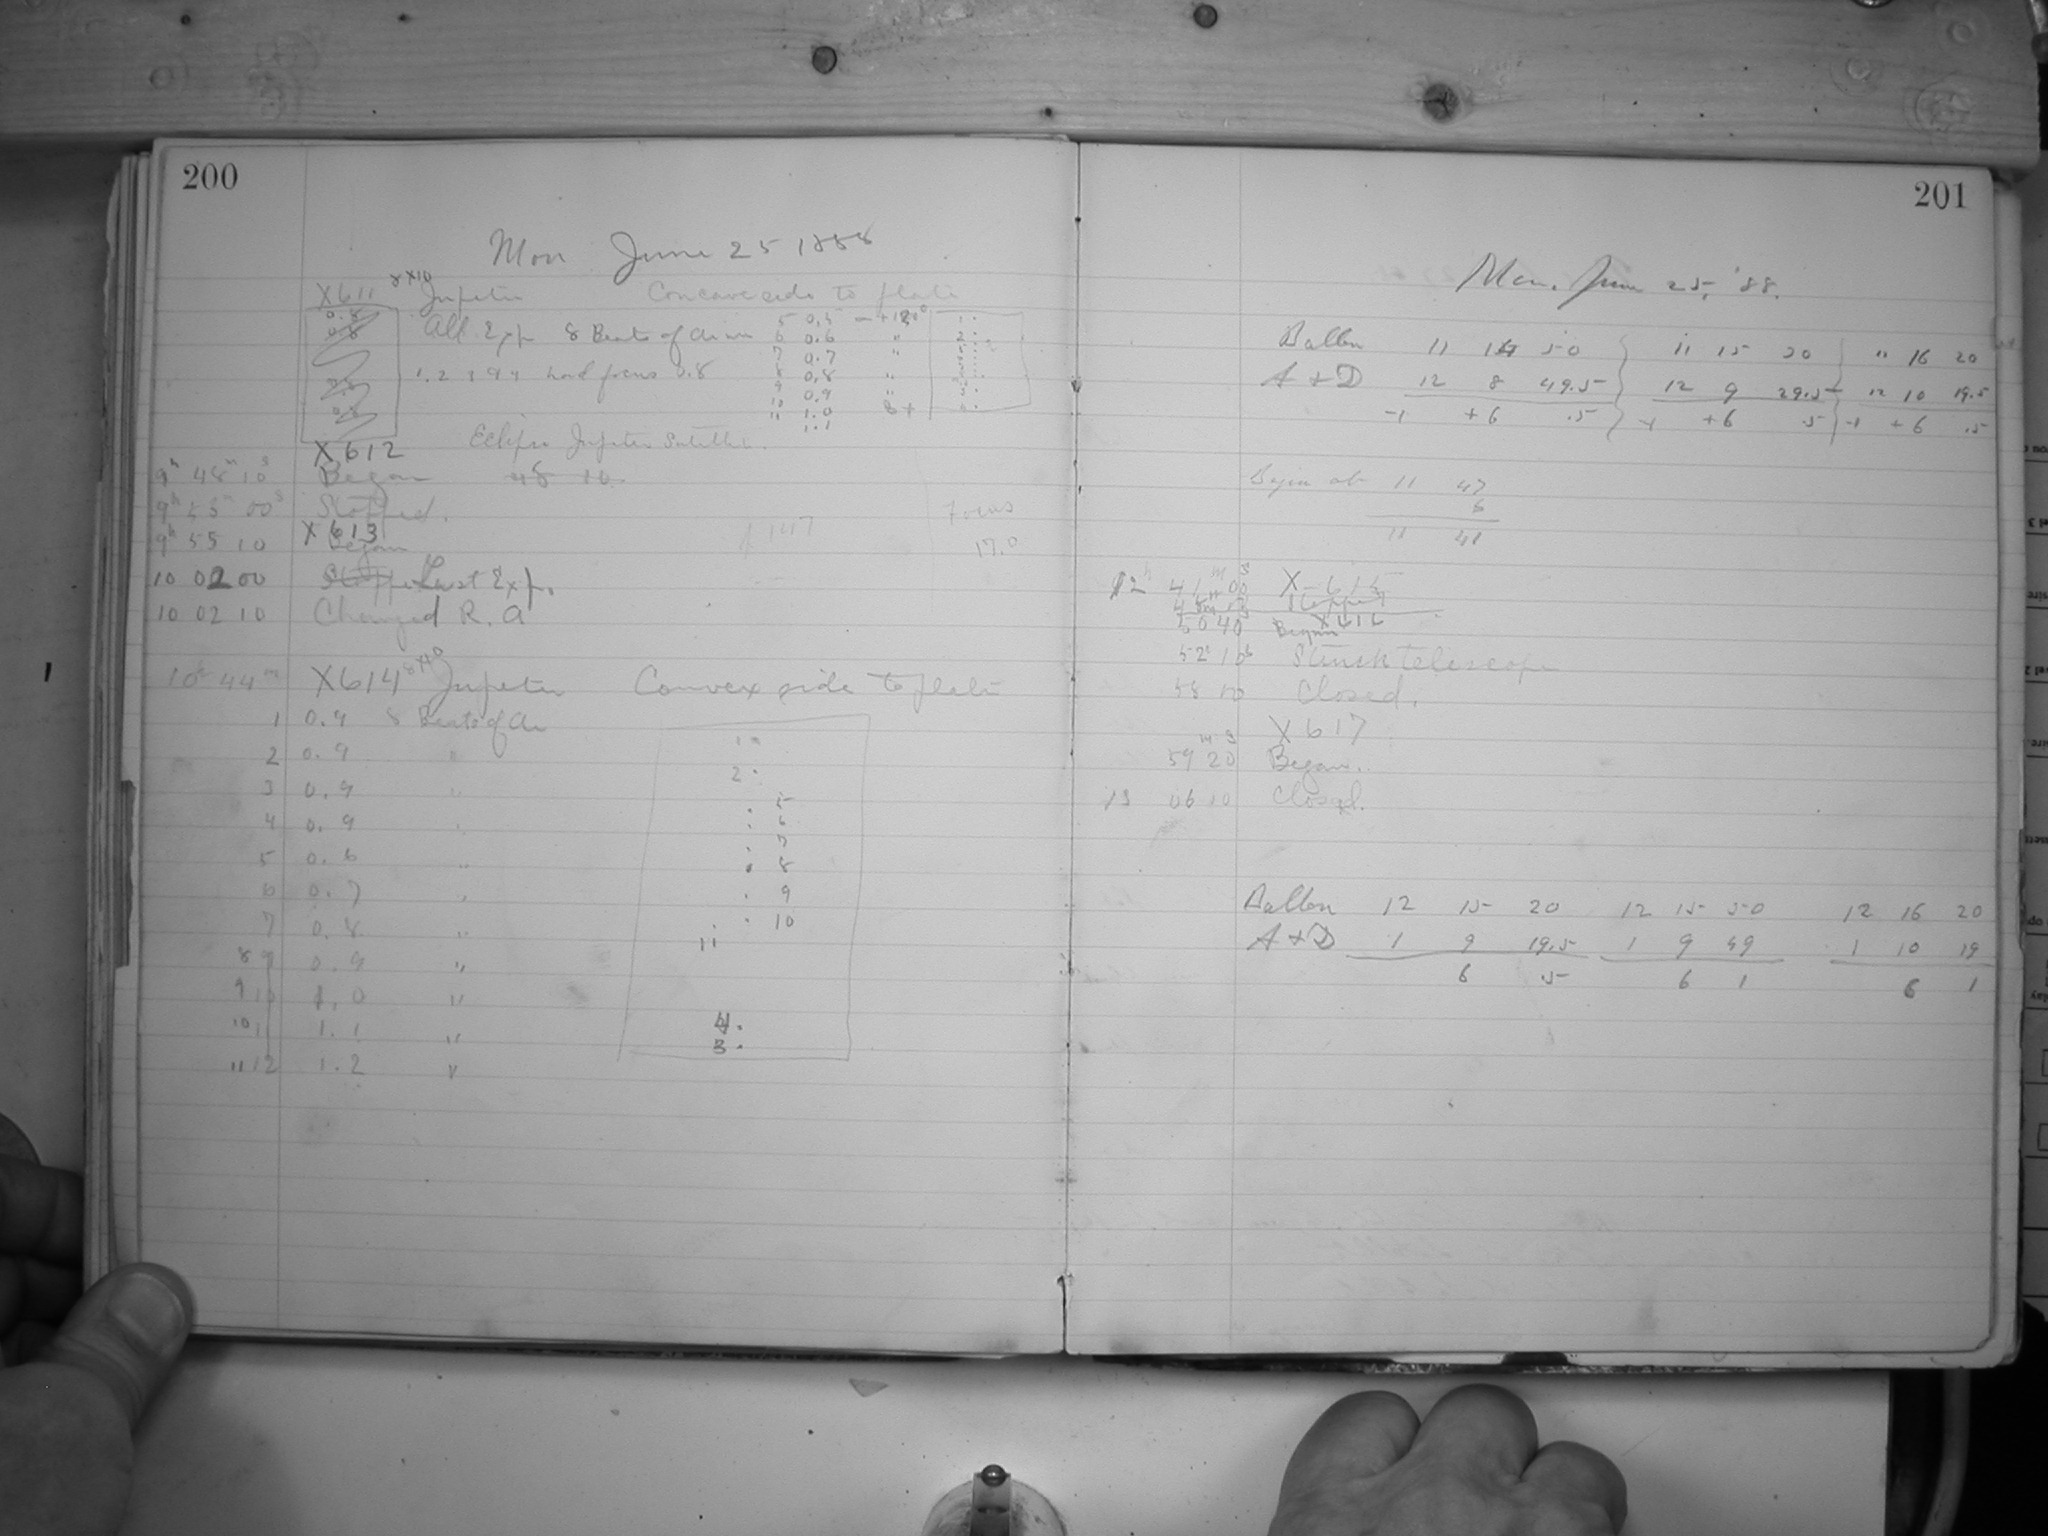 200
Mon June 25 1888
X611 8x10 Jupiter Concave side to plate
All Exp 8 Beats of Arm 5 0.5
6 0.6 "
7 0.7 "
1.2 3 9 4 had focus 0.8 8 0.8 "
9 0.9 "
10 1.0
11 1.1
X612 Eclipse Jupiter Satellite.
9h 48m 10s Began 48 10
9h 55m 00s Stopped.
Focus
X613
9h 55 10 Began
17.0
10 02 00 Last Exp.
10 02 10 Changed R. A
10h 44m X614 8x10 Jupiter Convex side to plate
1 0.9 8 Beats of Ar
2 0.9 "
3 0.9 "
4 0.9 "
5 0.6 "
6 0.7 "
7 0.8 "
8 0.9 "
9 1.0 "
10 1.1 "
11 12 1.2 "
1
2
5
6
7
8
9
10
11
4.
3.
201
Mon. June 25, '88.
11 14 50 11 15 20 " 16 20
A + D 12 8 49.5 12 9 29.5 12 10 19.5
-1 +6 .5 -1 +6 .5 -1 +6 .5
Began at 11 47
6
11 41
12h 41m 00s X-615
Stopped
X616
50 40 Began
52 10s Struck telescope
58 10 Closed.
X617
59m 20s Began.
13 06 10 Closed.
12 15 20 12 15 50 12 16 20
A + D 1 9 19.5 1 9 49 1 10 19
6 .5 6 1 6 1